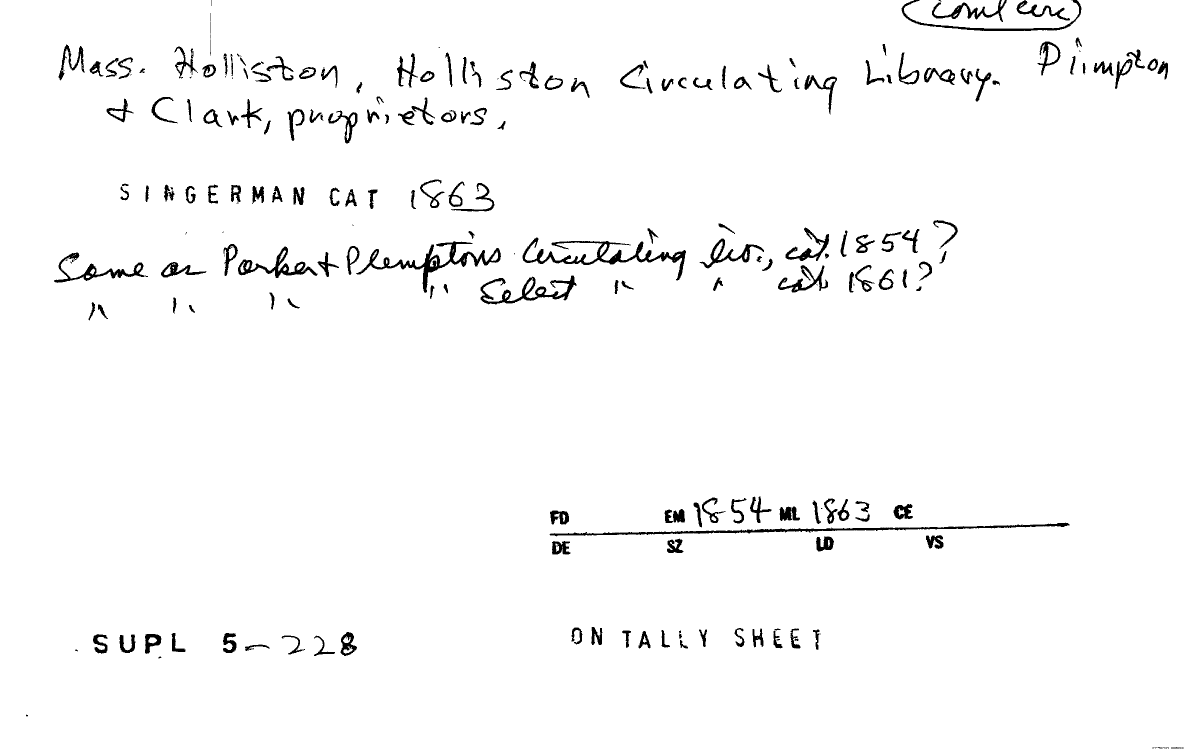 Coml circ
Mass. Holliston, Holliston Circulating Library. Plimpton
& Clark, proprietors.
SINGERMAN CAT 1863
Same as Parker & Plemptons Circulating lib., cat. 1854?
" " " " Select " " cat. 1861?
FD EM 1854 ML 1863 CE
DE SZ LD VS
SUPL 5-228
ON TALLY SHEET